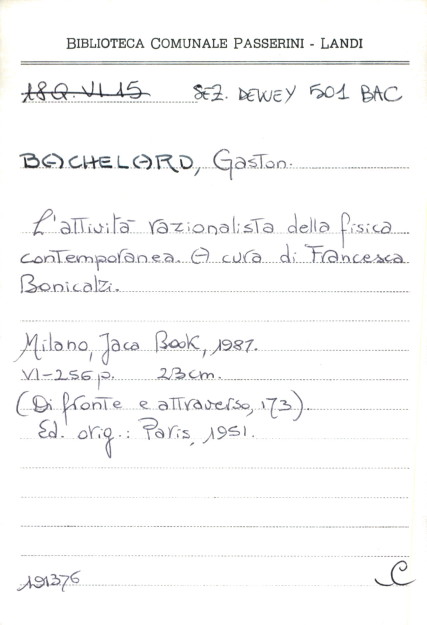 BIBLIOTECA COMUNALE PASSERINI - LANDI
18Q.VI.15 SEZ. DEWEY 501 BAC
BACHELARD, Gaston.
L'attività razionalista della fisica
contemporanea. A cura di Francesca
Bonicalzi.
Milano, Jaca Book, 1987.
VI-256 p. 23cm.
(Di fronte e attraverso, 173).
Ed. orig.: Paris, 1951.
191376 C